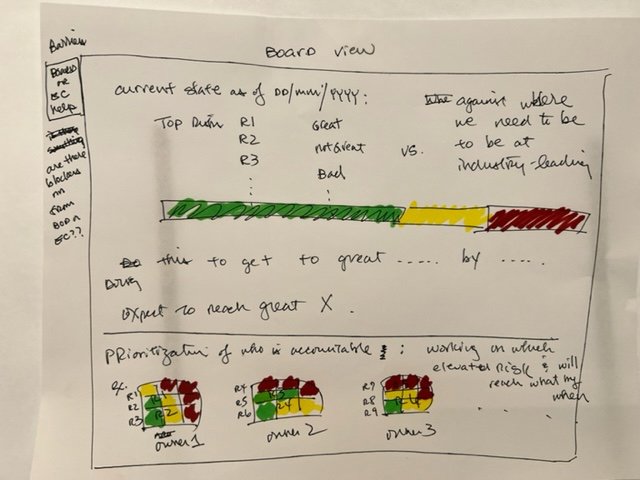 Board view
Barriers
Board
or
EC
help
are there
blockers
from
BOD or
EC??
current state as of DD/mm/YYYY:
Top R1 Great
R2 not Great
R3 Bad
vs.
against where
we need to be
to be at
industry-leading
Doing this to get to great ..... by .....
expect to reach great X.
Prioritization of who is accountable : working on which
elevated risk & will
reach what by
when
Ex.
R1
R2
R3
R1
R2
owner 1
R4
R5
R6
R5
R4
owner 2
R7
R8
R9
owner 3